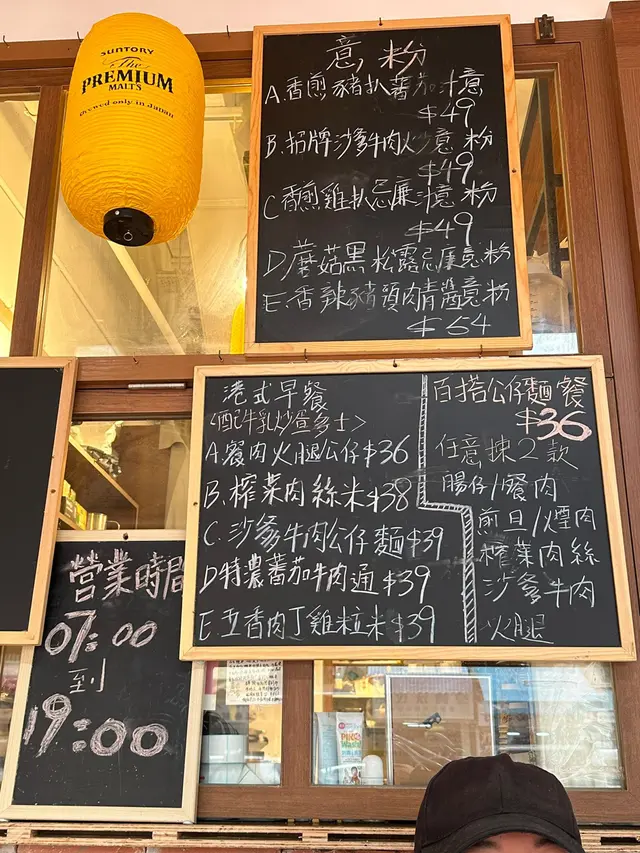 SUNTORY
The
PREMIUM
MALT'S
Brewed only in Japan
意粉
A.香煎豬扒蕃茄汁意
$49
B.招牌沙爹牛肉火炒意粉
$49
C香煎雞扒忌廉汁意粉
$49
D/蘑菇黑松露忌廉意粉
E.香辣豬頸肉青醬意粉
$54
港式早餐
<配牛乳炒蛋多士>
A.餐肉火腿公仔$36
B.榨菜肉絲米$38
C.沙爹牛肉公仔麵$39
D特濃蕃茄牛肉通$39
E.五香肉丁雞粒米$39
百搭公仔麵餐
$36
任意揀2款
腸仔/餐肉
煎旦/煙肉
榨菜肉絲
沙爹牛肉
火腿
營業時間
07:00
到
19:00